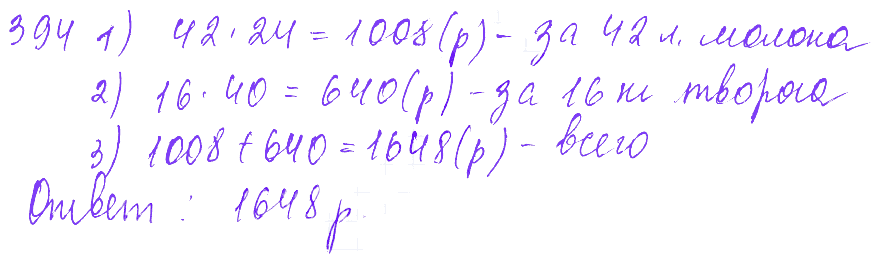 394 1) 42 · 24 = 1008 (р) - за 42 л. молока
2) 16 · 40 = 640 (р) - за 16 кг творога
3) 1008 + 640 = 1648 (р) - всего
Ответ : 1648 р.